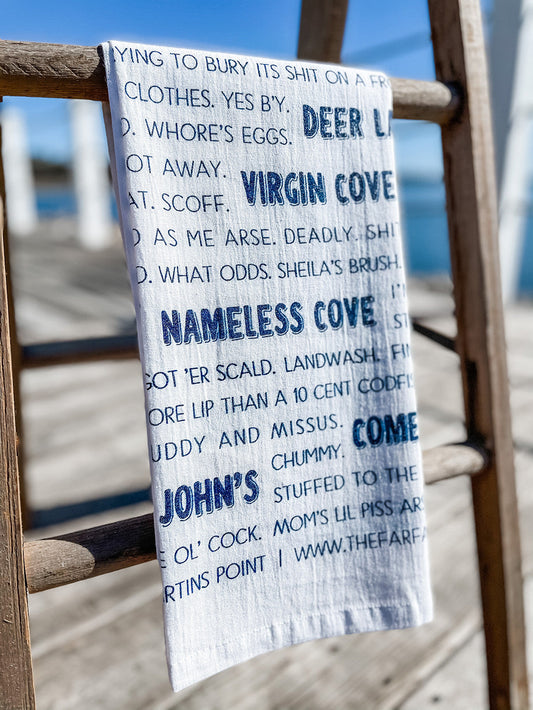 YING TO BURY ITS SHIT ON A FR
CLOTHES. YES B'Y.
DEER L
D. WHORE'S EGGS.
OT AWAY.
VIRGIN COVE
AT. SCOFF.
D AS ME ARSE. DEADLY. SHI
D. WHAT ODDS. SHEILA'S BRUSH.
I'
NAMELESS COVE
ST
GOT 'ER SCALD. LANDWASH. FI
ORE LIP THAN A 10 CENT CODFIS
UDDY AND MISSUS.
COME
CHUMMY.
JOHN'S
STUFFED TO THE
E OL' COCK. MOM'S LIL PISS AR
RTINS POINT | WWW.THEFARFA